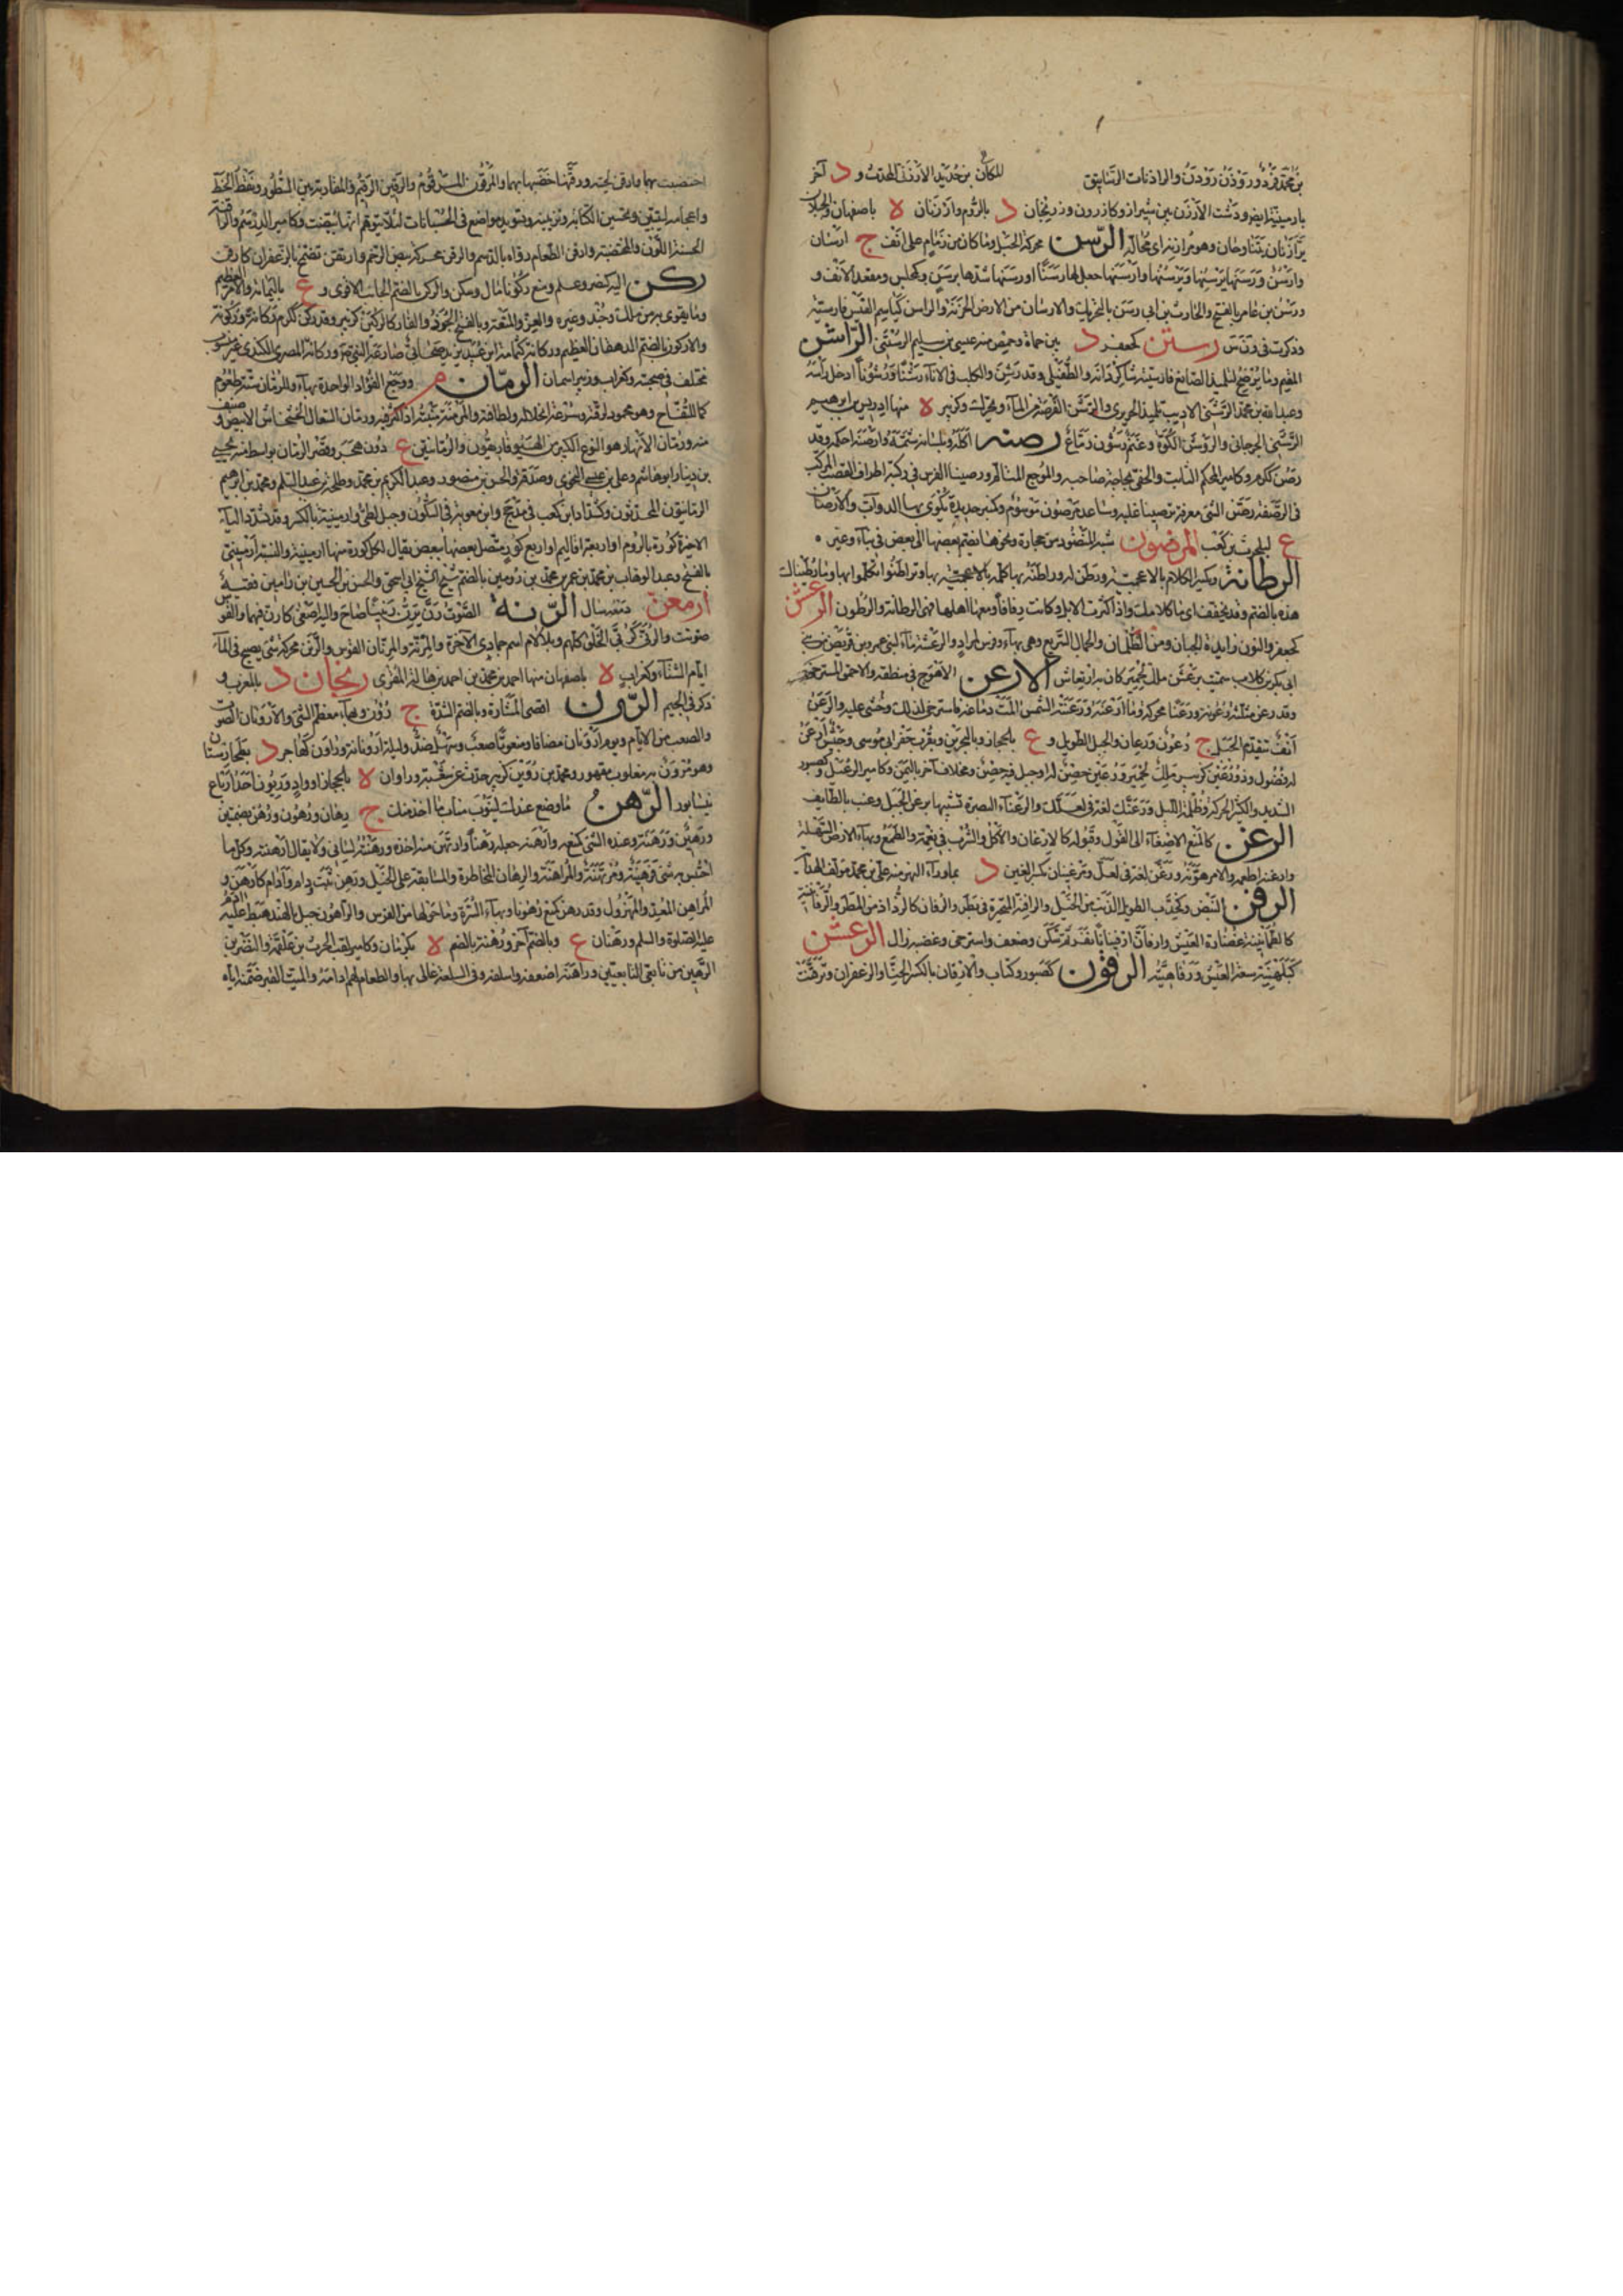 للمكان بن محمد بن الأرزني المحدث و د آخر
بارمينية ايضا ودشت الأرزن بين شيراز وكازرون وزرنجان د بالروم وأرزنان ه باصفهان
الرسن محركة الحبل وما كان من زمام على انف ج ارسان
وارسن ورسنها يرسنها ويرسنها وارسنها جعل لها رسنا او رسنها شدها برسن وكمجلس ومقعد الانف و
ورسن بن عامر بالفتح والحارث بن ابي رسن بالتحريك والارسان من الارض الحزنة والراسن كياسم القنس فارسية
وذكرت في ق ن س رستن كجعفر د بين حماة وحمص منه عيسى بن سليم الرستني الراشن
المقيم وما يرضخ لتلميذ الصانع فارسيته شاكردانه والطفيلي وقد رشن والكلب في الاناء رشنا ورشونا ادخل رأسه
وعبد الله بن محمد الراشني الاديب تلميذ الحريري والرشن الفرضة من الماء ويحرك وكزبير ه منها ادريس بن ابرهيم
الرشيني الجرجاني والروشن الكوة وغنم رشون رتاع رصنه اكمله وبلسانه شتمه وارصنه احكمه وقد
رصن ككرم وكامير المحكم الثابت والحفي بحاجة صاحبه والموجع المتالم ورصينا الفرس في ركبته اطراف القصب المركب
في الرضفة ورصن الشيء معرفة ترصينا علمه وساعد مرصون موسوم وكمنبر حديدة تكوى بها الدواب والارصان
ع لبلحرث بن كعب المرضون شبه المنضود من حجارة ونحوها يضم بعضها الى بعض في بناء وغيره
الرطانة ويكسر الكلام بالاعجمية ورطن له وراطنه كلمه بها وتراطنوا تكلموا بها وما رطيناك
هذه بالضم وقد يخفف اي ما كلامك واذا كثرت الابل وكانت رفاقا ومعها اهلها فهي الرطانة والرطون الرعشن
كجعفر والنون زائدة الجبان ومن الظلمان والجمال السريع وهي بهاء وفرس لمراد والرعشنة ماءة لبني عمرو بن قريظ من بني
ابي بكر بن كلاب سميت برعشن ملك لحمير كان به ارتعاش الارعن الاهوج في منطقه والاحمق المسترخي
وقد رعن مثلثة رعونة ورعنا محركة وما ارعنه ورعنته الشمس المت دماغه فاسترخى لذلك وغشي عليه والرعن
انف يتقدم الجبل ج رعون ورعان والجبل الطويل و ع بالحجاز وبالبحرين وبقرب حفر ابي موسى وجيش ارعن
له فضول وذو رعين كزبير ملك حمير ورعين حصن له او جبل فيه حصن ومخلاف آخر باليمن وكامير الرعيل وكصبور
الشديد والكثير الحركة وظلمة الليل ورعنك لغة في لعلك والرعناء البصرة تشبيها برعن الجبل وعنب بالطائف
الرغن كالمنع الاصغاء الى القول وقبوله كالارغان والاكل والشرب في نعمة والطمع وبهاء الارض السهلة
وارغنه اطعمه والامر هونه ورغن لغة في لعل ومرغينان بكسر الغين د بما وراء النهر منه علي بن محمد مؤلف الهداية
الرفن النبض وكخدب الطويل الذنب من الخيل والرافنة المتبخترة في بطر والرفان كالرذاذ من المطر والرفأنينة
كالطمأنينة غضارة العيش وارفأن ارفئنانا نفر ثم سكن وضعف واسترخى وغضبه زال الرعشن
كبلهنية سعة العيش ورفاهيته الرقون كصبور وكتاب والارقان بالكسر الحناء والزعفران وترقنت
اختضبت بهما وارقن لحيته ورقنها خضبها بهما والمرقون المرقوم والرقين الرقيم والمقاربة بين السطور ونقط الخط
واعجامه ليتبين وتحسين الكتاب وتزيينه وتسويد مواضع في الحسبانات لئلا يتوهم انها بيضت وكامير الدرهم والراقنة
الحسنة اللون والمختضبة وارقن الطعام رواه بالدسم والرقن محركة بيض الرخم وارتقن تضمخ بالزعفران كارقن
ركن اليه كنصر وعلم ومنع ركونا مال وسكن والركن بالضم الجانب الاقوى و ع باليمامة والامر العظيم
وما يقوى به من ملك وجند وغيره والعز والمنعة وبالفتح الجرذ والفار كالركين كزبير وقد ركن ككرم ركانة وركونة
والاركون بالضم الدهقان العظيم وركانة كثمامة ابن عبد يزيد صحابي صارعه النبي وركانة المصري الكندي غير منسوب
مختلف في صحبته وكغراب وزبير اسمان الرمان م ووجع الفؤاد الواحدة بهاء وللرمان ستة طعوم
كما للتفاح وهو محمود لرقته وسرعة انحلاله ولطافته والمرمنة منبته اذا كثر فيه ورمان السعال الخشخاش الابيض او صنف
منه ورمان الانهار هو النوع الكبير من الهيوفاريقون والرمانتين ع دون هجر وقصر الرمان بواسط منه يحيى
بن دينار ابو هاشم وعلي بن عيسى النحوي وصدقة والحسن بن منصور وعبد الكريم بن محمد وطلحة بن عبد السلم ومحمد بن ابرهيم
الرمانيون المحدثون وكشداد ابن كعب في مذحج وابن معوية في السكون وجبل لطيء وارمينية بالكسر وقد تشدد الياء
الاخيرة كورة بالروم او اربعة اقاليم او اربع كور متصل بعضها ببعض يقال لكل كورة منها ارمينية والنسبة ارميني
بالفتح وعبد الوهاب بن محمد بن عمر بن محمد بن رومين بالضم شيخ الشيخ ابي اسحق والحسن بن الحسين بن رامين فقيه
ارمعن دمعه سال الرنة الصوت رن يرن رنينا صاح واليه اصغى كارن فيهما والقوس
صوتت والرنى كربى الخلق كلهم وبلا لام اسم جمادى الآخرة والمرنة والمرنان القوس والرنن محركة شيء يصيح في الماء
ايام الشتاء وكغراب ه باصفهان منها احمد بن محمد بن احمد بن هالة المقرئ رنجان د بالمغرب و
ذكر في الجيم الرون اقصى المشارة وبالضم الشدة ج رؤون وبهاء معظم الشيء والارونان الصوت
والصعب من الايام ويوم ارونان مضافا ومنعوتا صعب وسهل ضد وليلة ارونانة وراون كهاجر د بطخارستان
وهو مرون به مغلوب مقهور ومحمد بن روين كزبير حدث عن شعبة وراوان ه بالحجاز او واد وريون احد ارباع
نيسابور الرهن ما وضع عندك لينوب مناب ما اخذ منك ج رهان ورهون ورهن بضمتين
ورهين ورهنه وعنده الشيء كمنعه وارهنه جعله رهنا وارتهن منه اخذه ورهنته لساني ولا يقال ارهنته وكل ما
احتبس به شيء فرهينه ومرتهنه والمراهنة والرهان المخاطرة والمسابقة على الخيل ورهن ثبت ودام وادام كارهن و
الراهن المعد والمهزول وقد رهن كمنع رهونا وبهاء السرة وما حولها من الفرس والراهون جبل بالهند هبط عليه آدم
عليه الصلوة والسلم ورهنان ع وبالضم آخر ورهنة بالضم ه بكرمان وكامير لقب الحرث بن علقمة والنضر بن
الرهين من تابعي التابعين وراهنه اضعفه واسلفه وفي السلعة غالى بها والطعام لهم ادامه والميت القبر ضمنه اياه